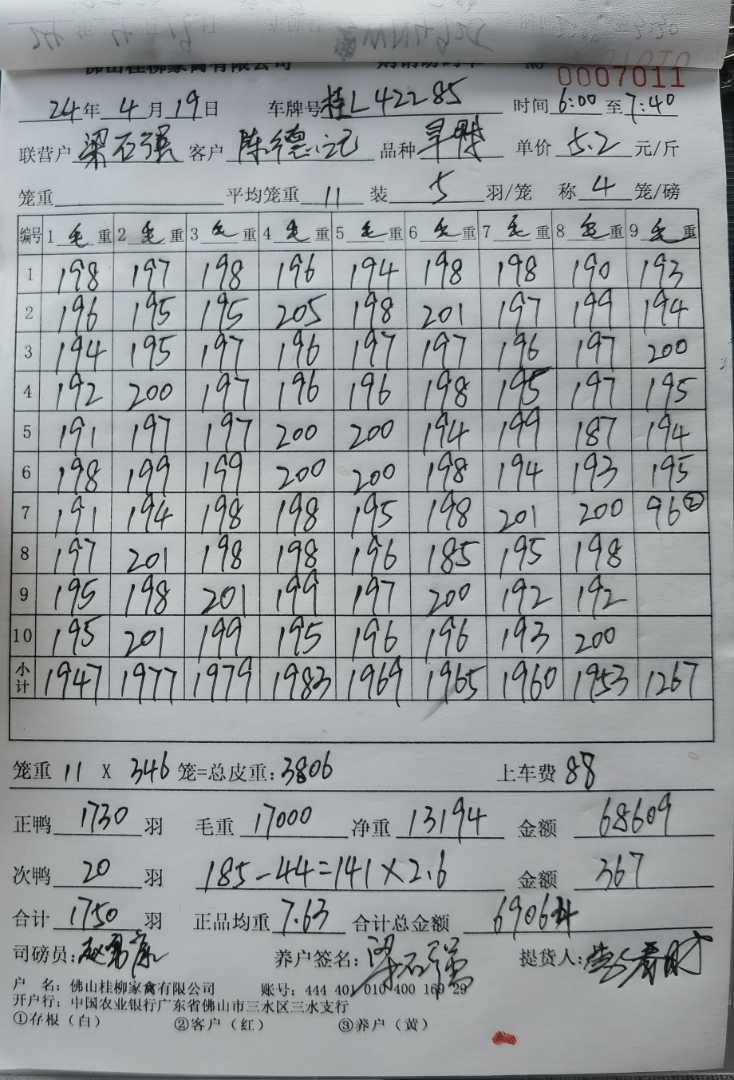 佛山桂柳家禽有限公司
0007011
24年4月19日 车牌号桂L42285 时间6:00至7:40
联营户梁石强 客户陈德记 品种 单价5.2元/斤
笼重 平均笼重11装5羽/笼 称4笼/磅
编号 1毛重 2毛重 3毛重 4毛重 5毛重 6毛重 7毛重 8毛重 9毛重
1 198 197 198 196 194 198 198 190 193
2 196 195 195 205 198 201 197 199 194
3 194 195 197 196 197 197 196 197 200
4 192 200 197 196 196 198 195 197 195
5 191 197 197 200 200 194 199 187 194
6 198 199 199 200 200 198 194 193 195
7 191 194 198 198 195 198 201 200 96②
8 197 201 198 198 196 185 195 198
9 195 198 201 199 197 200 192 192
10 195 201 199 195 196 196 193 200
小计 1947 1977 1979 1983 1969 1965 1960 1953 1267
笼重 11 X 346笼=总皮重:3806 上车费88
正鸭1730羽 毛重17000 净重13194 金额68609
次鸭20羽 185-44=141×2.6 金额367
合计1750羽 正品均重7.63 合计总金额
司磅员: 养户签名:梁石强 提货人:
户 名:佛山桂柳家禽有限公司 账号:444 401 010 400 169 29
开户行:中国农业银行广东省佛山市三水区三水支行
①存根(白) ②客户(红) ③养户(黄)